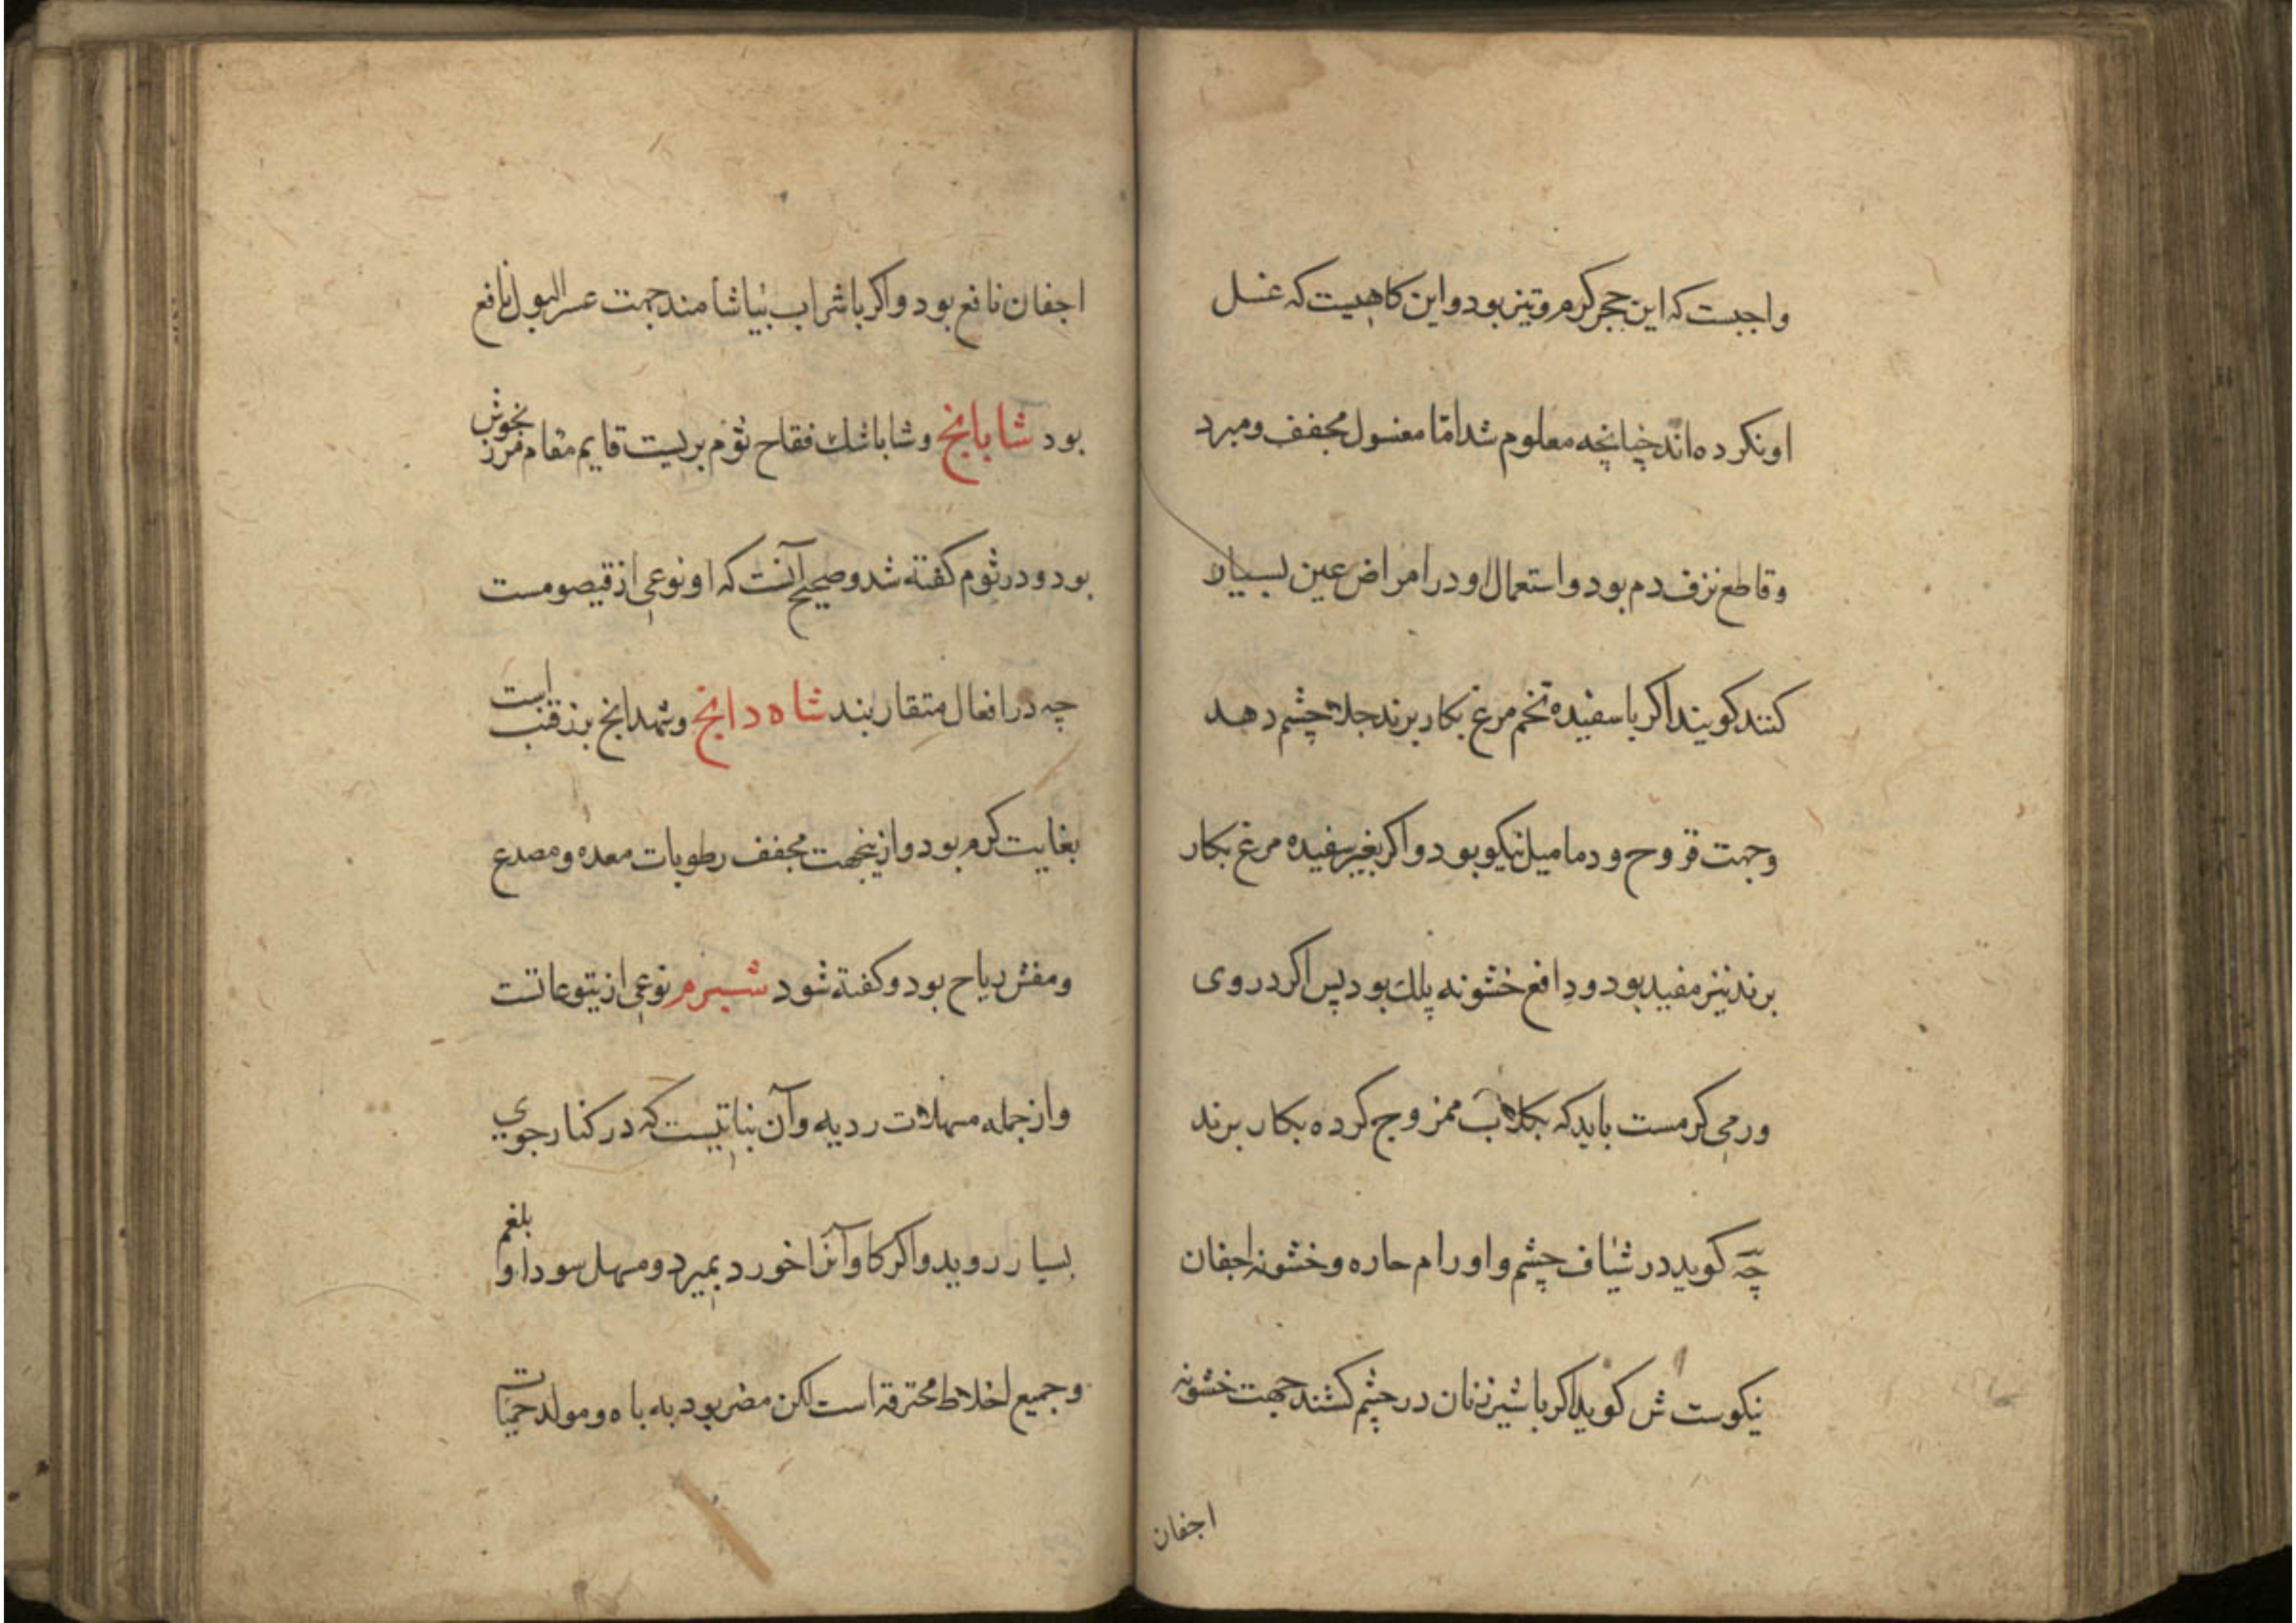 واجبست که این حجر کرم و تیز بود و این کاهیست که غسل
او نکرده‌اند چنانچه معلوم شد امّا مغسول مجفف و مبرد
و قاطع نزف دم بود و استعمال او در امراض عین بسیار
کنند کویند اکر با سفیده تخم مرغ بکار برند جلاء چشم دهد
و جهت قروح و دمامیل نیکو بود و اکر بغیر سفیده مرغ بکار
برند نیز مفید بود و دافع خشونه پلك بود پس اکر در وی
ورمی کرمست باید که بکلاب ممزوج کرده بکار برند
چه کوید در شیاف چشم و اورام حاره و خشونه اجفان
نیکوست ش کوید اکر با شیر زنان در چشم کشند جهت خشونه
اجفان
اجفان نافع بود و اکر با شراب بیاشامند جهت عسر البول نافع
بود شابانج و شاباشك فقاح ثوم بریست قایم مقام مرزنجوش
بود و در ثوم کفته شد و صحیح آنست که او نوعی از قیصومست
چه در افعال متقاربند شاه دانج و شهدانج بزر قنب است
بغایت کرم بود و ازینجهت مجفف رطوبات معده و مصدع
و مفش ریاح بود و کفته شود شبرم نوعی از یتوعاتست
و از جمله مسهلات ردیه و آن نباتیست که در کنار جوی
بسیار روید و اکر کاو آنرا خورد بمیرد و مسهل سودا و بلغم
و جمیع اخلاط محترقه است لکن مضر بود به باه و مولد حمیّات